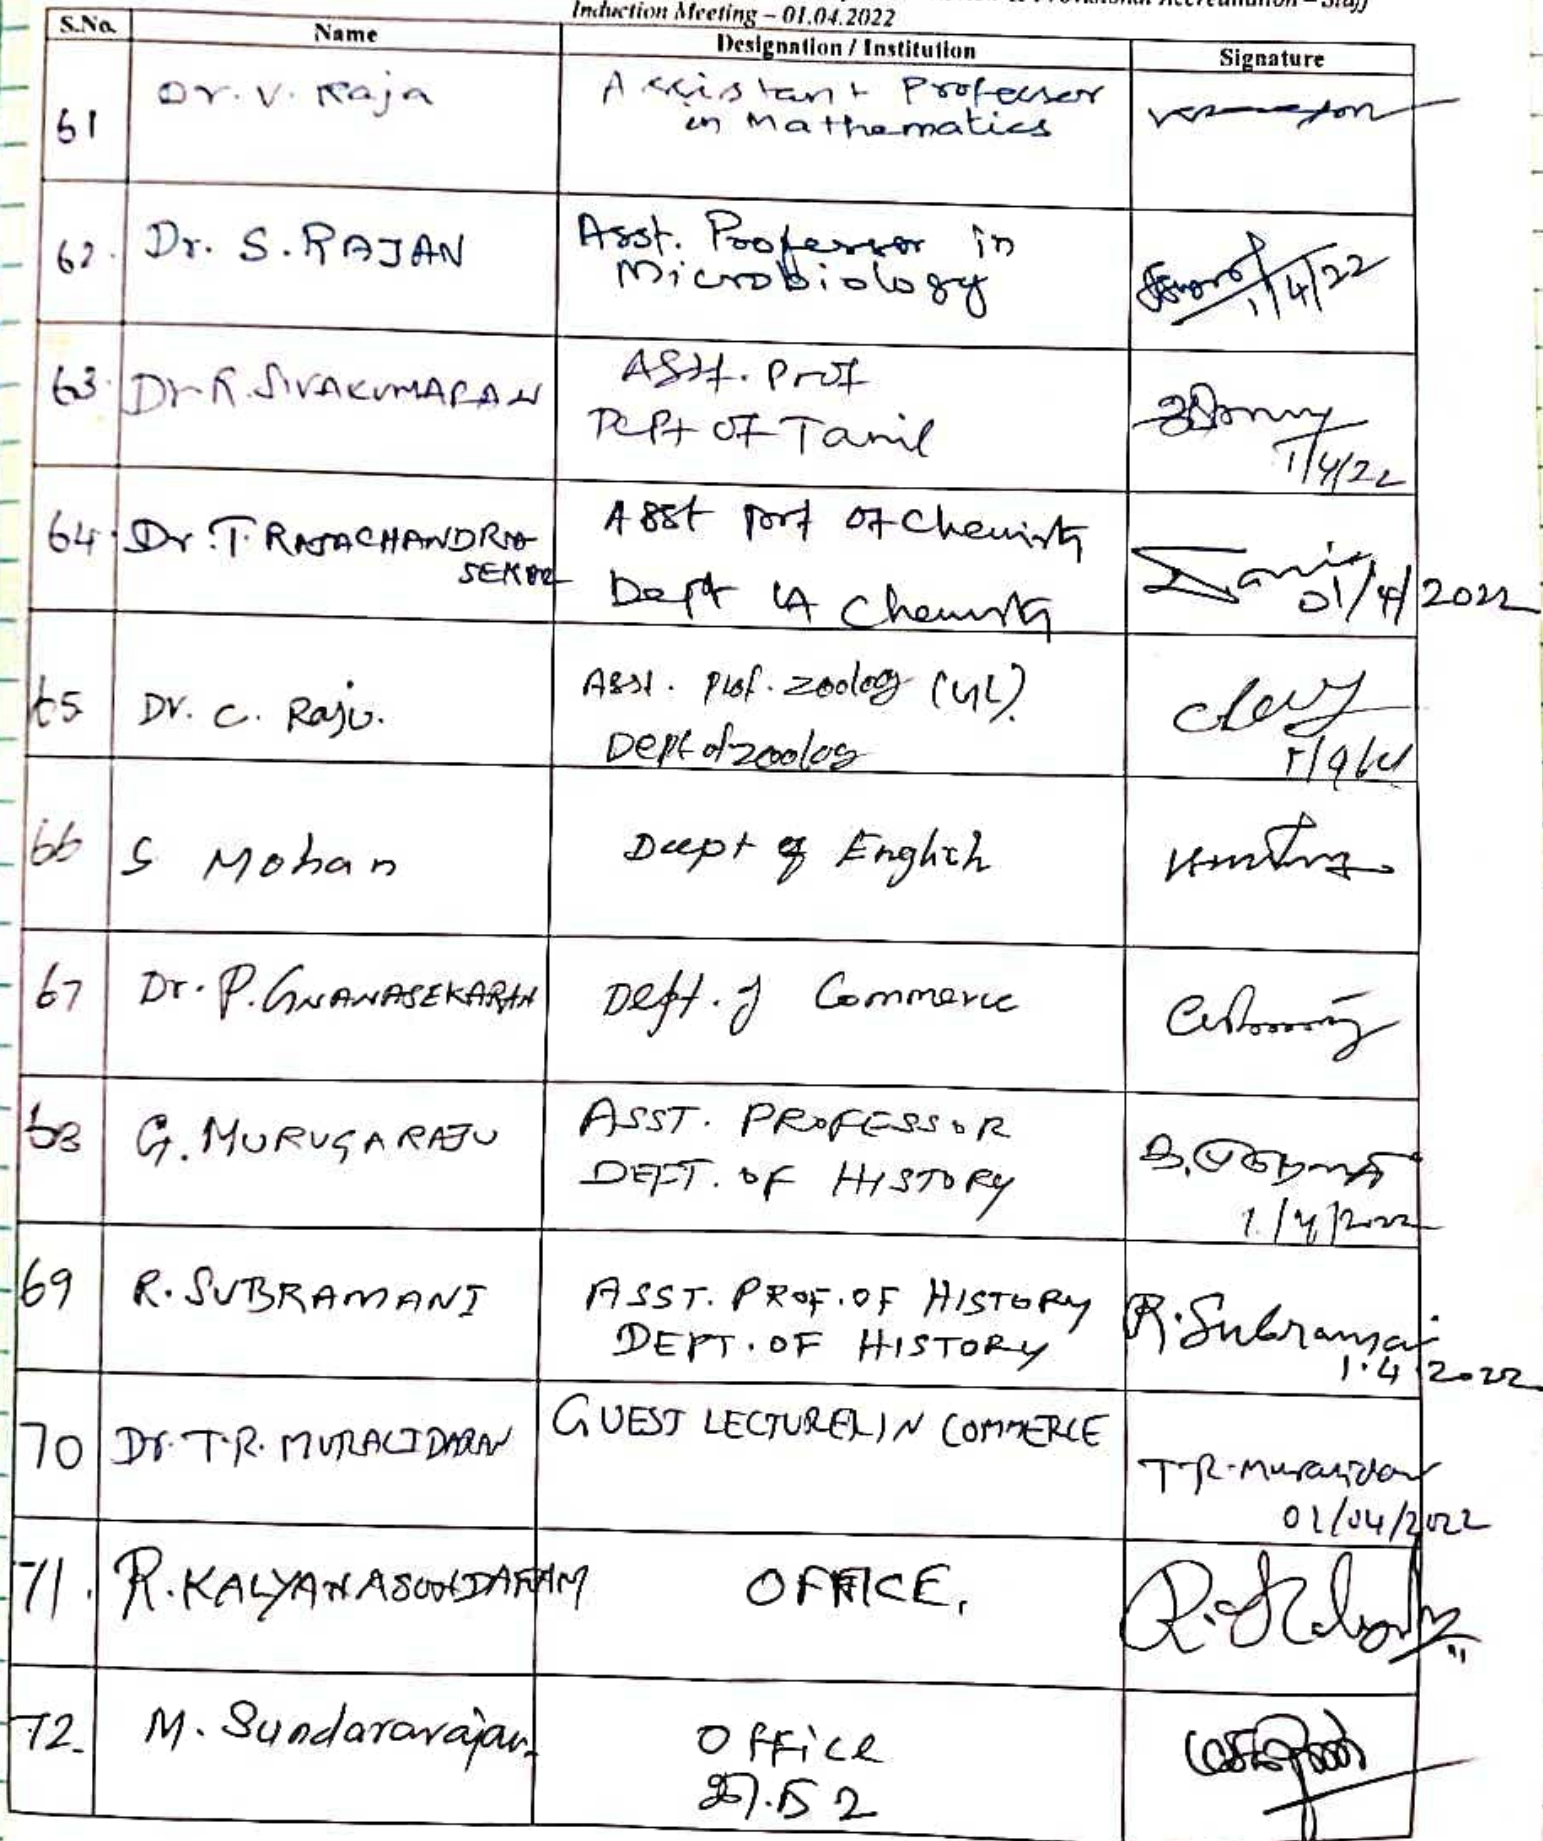 Accreditation – Staff
Induction Meeting – 01.04.2022
S.No. Name Designation / Institution Signature
61 Dr. V. Raja Assistant Professor
in Mathematics
62. Dr. S. RAJAN Asst. Professor in
Microbiology
1/4/22
63. Dr R. SIVAKUMARAN Asst. Prof
Dept of Tamil
1/4/22
64. Dr. T. RAJACHANDRA Asst Prof of Chemistry
SEKAR Dept of Chemistry
01/4/2022
65 Dr. C. Raju. Asst. Prof. zoolog (GL).
Dept of zoolog
66 S Mohan Deept of English
67 Dr. P. GNANASEKARAN Dept. of Commerce
68 G. MURUGARAJU ASST. PROFESSOR
DEPT. OF HISTORY
1/4/2022
69 R. SUBRAMANI ASST. PROF. OF HISTORY R. Subramani
DEPT. OF HISTORY 1.4.2022
70 Dr. T.R. MURALIDARAN GUEST LECTURER IN COMMERCE
T.R. Muralidaran
01/04/2022
71. R. KALYANASUNDARAM OFFICE.
72. M. Sundararajan Office